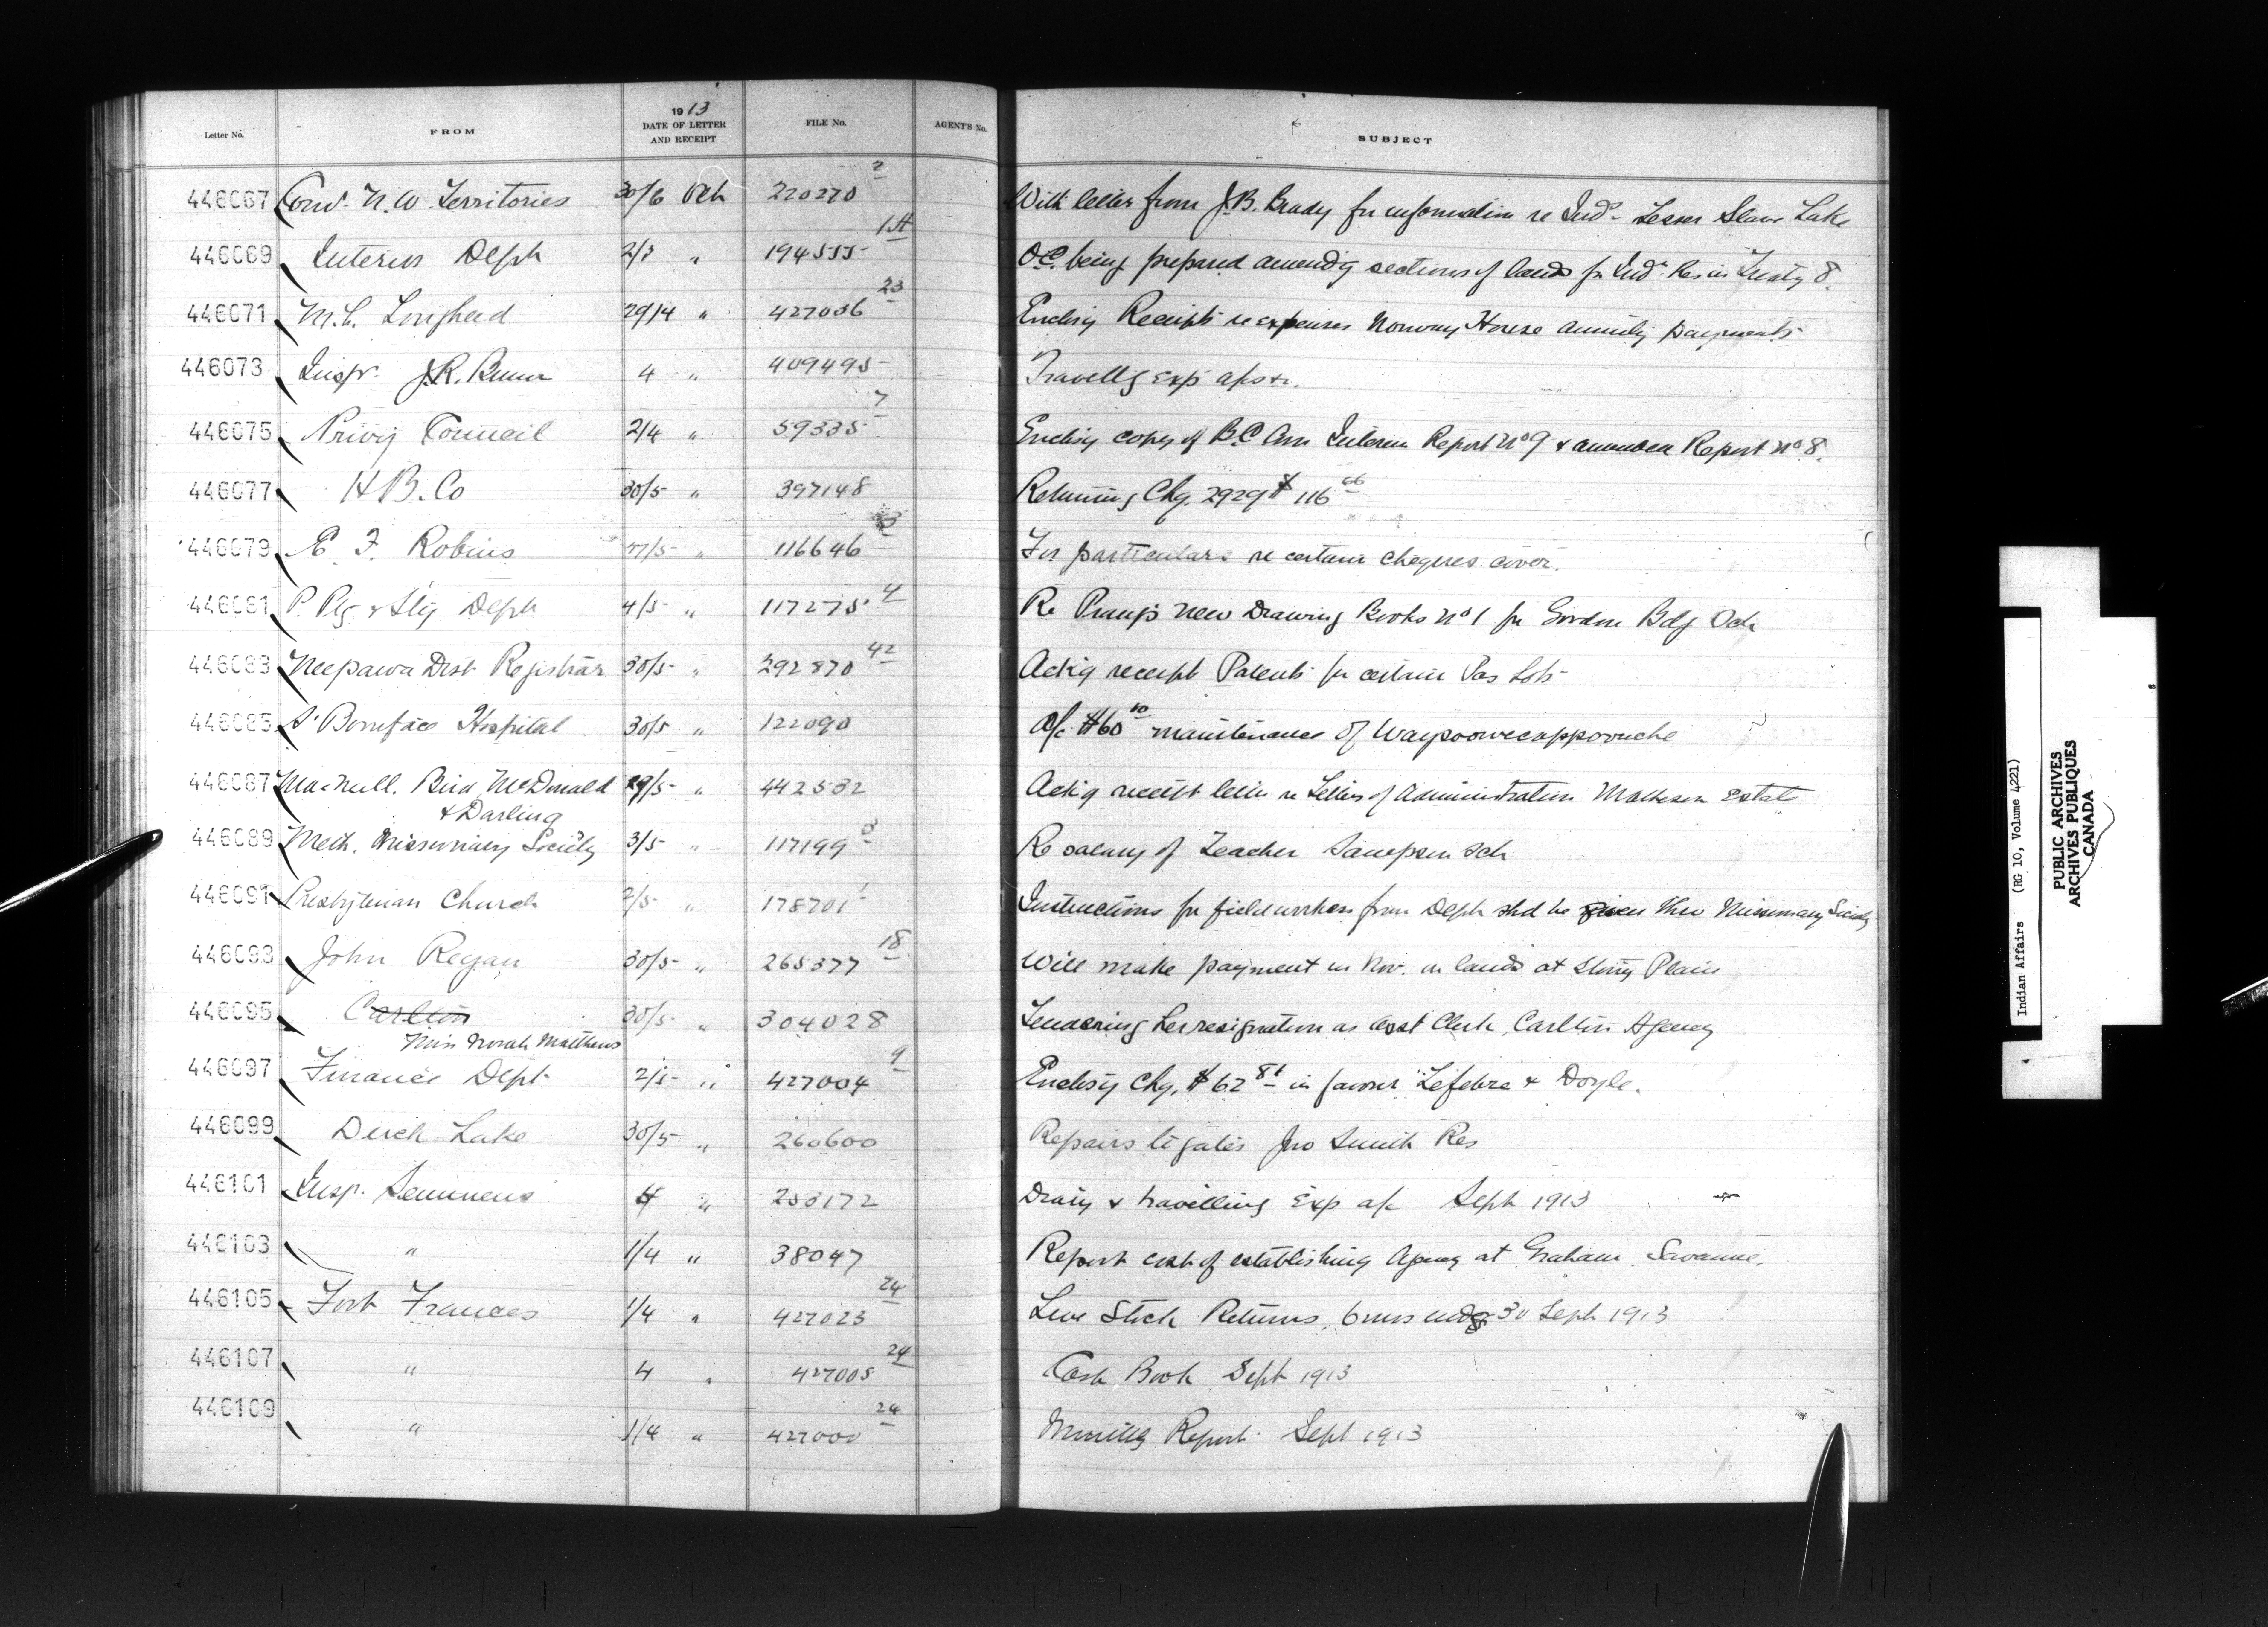 1913
Letter No. FROM DATE OF LETTER AND RECEIPT FILE No. AGENT'S No. SUBJECT
446067 Com. N.W. Territories 30/6 Oct 220270 2 With letter from J.B. Brady for information re Inds. Lesser Slave Lake
446069 Interior Dept 2/3 " 194555 1st O.C. being prepared amendg sections of lands for Ind. Res in Treaty 8.
446071 29/4 " 427036 23 Enclsg Receipts re expenses Norway House annuity payments
446073 Inspr. J.R. 4 " 409495 Travellg Exp a/c
446075 Privy Council 2/4 " 59335 7 Enclsg copy of B.C. Com Interim Report No 9 & amended Report No 8.
446077 H B. Co 30/5 " 397148 Returning Chq. 2929 $116 66
446079 E. F. Robins 27/5 " 116646 3 For particulars re certain cheques cover.
446081 P. Ptg & Sty Dept 4/5 " 117275 4 Re Prang's new Drawing Books No 1 for Gordon Bdg Sch
446083 Neepawa Dist Registrar 30/5 " 292870 42 Ackg receipt Patents for certain Pas Lots
446085 St Boniface Hospital 30/5 " 122090 A/c $60 10 maintenance of
446087 MacNeill. Bird, McDonald & Darling 29/5 " 442532 Ackg receipt letter re Letters of Administration Matheson Estate
446089 Meth. Missionary Society 3/5 " 117199 3 Re salary of Teacher Sampson Sch
446091 Presbyterian Church 2/5 " 178701 1 Instructions for fieldworkers from Dept shd be given thro Missionary Society
446093 John Regan 30/5 " 265377 18 Will make payment in Nov. on lands at Stony Plain
446095 Carlton Miss Norah Matthews 30/5 " 304028 Tendering her resignation as Asst Clerk, Carlton Agency
446097 Finance Dept 2/5 " 427004 9 Enclsg Chq. $62 81 in favour Lefebre & Doyle.
446099 Duck Lake 30/5 " 260600 Repairs to gates Jno Smith Res
446101 Insp. Semmens 4 " 253172 Diary & travelling Exp a/c Sept 1913
446103 " 1/4 " 38047 Report cost of establishing Agency at Graham, Savanne.
446105 Fort Frances 1/4 " 427023 24 Live Stock Returns, 6 mos endg 30 Sept 1913
446107 " 4 " 427005 24 Cash Book Sept 1913
446109 " 1/4 " 427000 24 Monthly Report Sept 1913
Indian Affairs (RG 10, Volume 4221)
PUBLIC ARCHIVES
ARCHIVES PUBLIQUES
CANADA